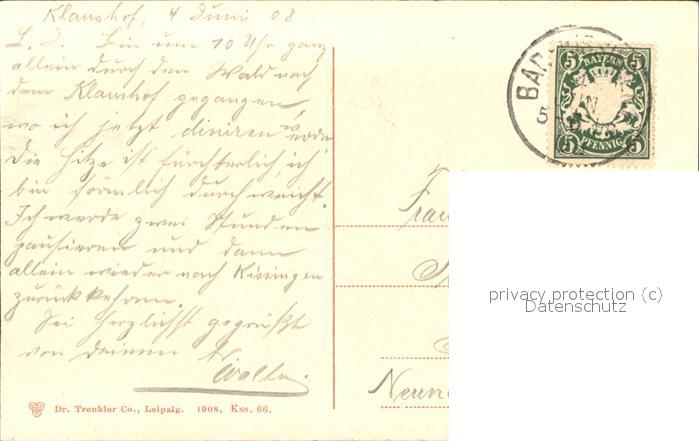 Klaushof, 4 Juni 08
L. J. Bin um 10 Uhr ganz
allein durch den Wald nach
dem Klaushof gegangen,
wo ich jetzt diniren werde.
Die Hitze ist fürchterlich, ich
bin förmlich durchweicht.
Ich werde zwei Stunden
pausieren und dann
allein wieder nach Kissingen
zurückkehren.
Sei herzlichst gegrüßt
von Deinem
Walter.
Dr. Trenkler Co., Leipzig. 1908. Kss. 66.
BAD
5 BAYERN 5
5 PFENNIG 5
Frau
privacy protection (c)
Datenschutz